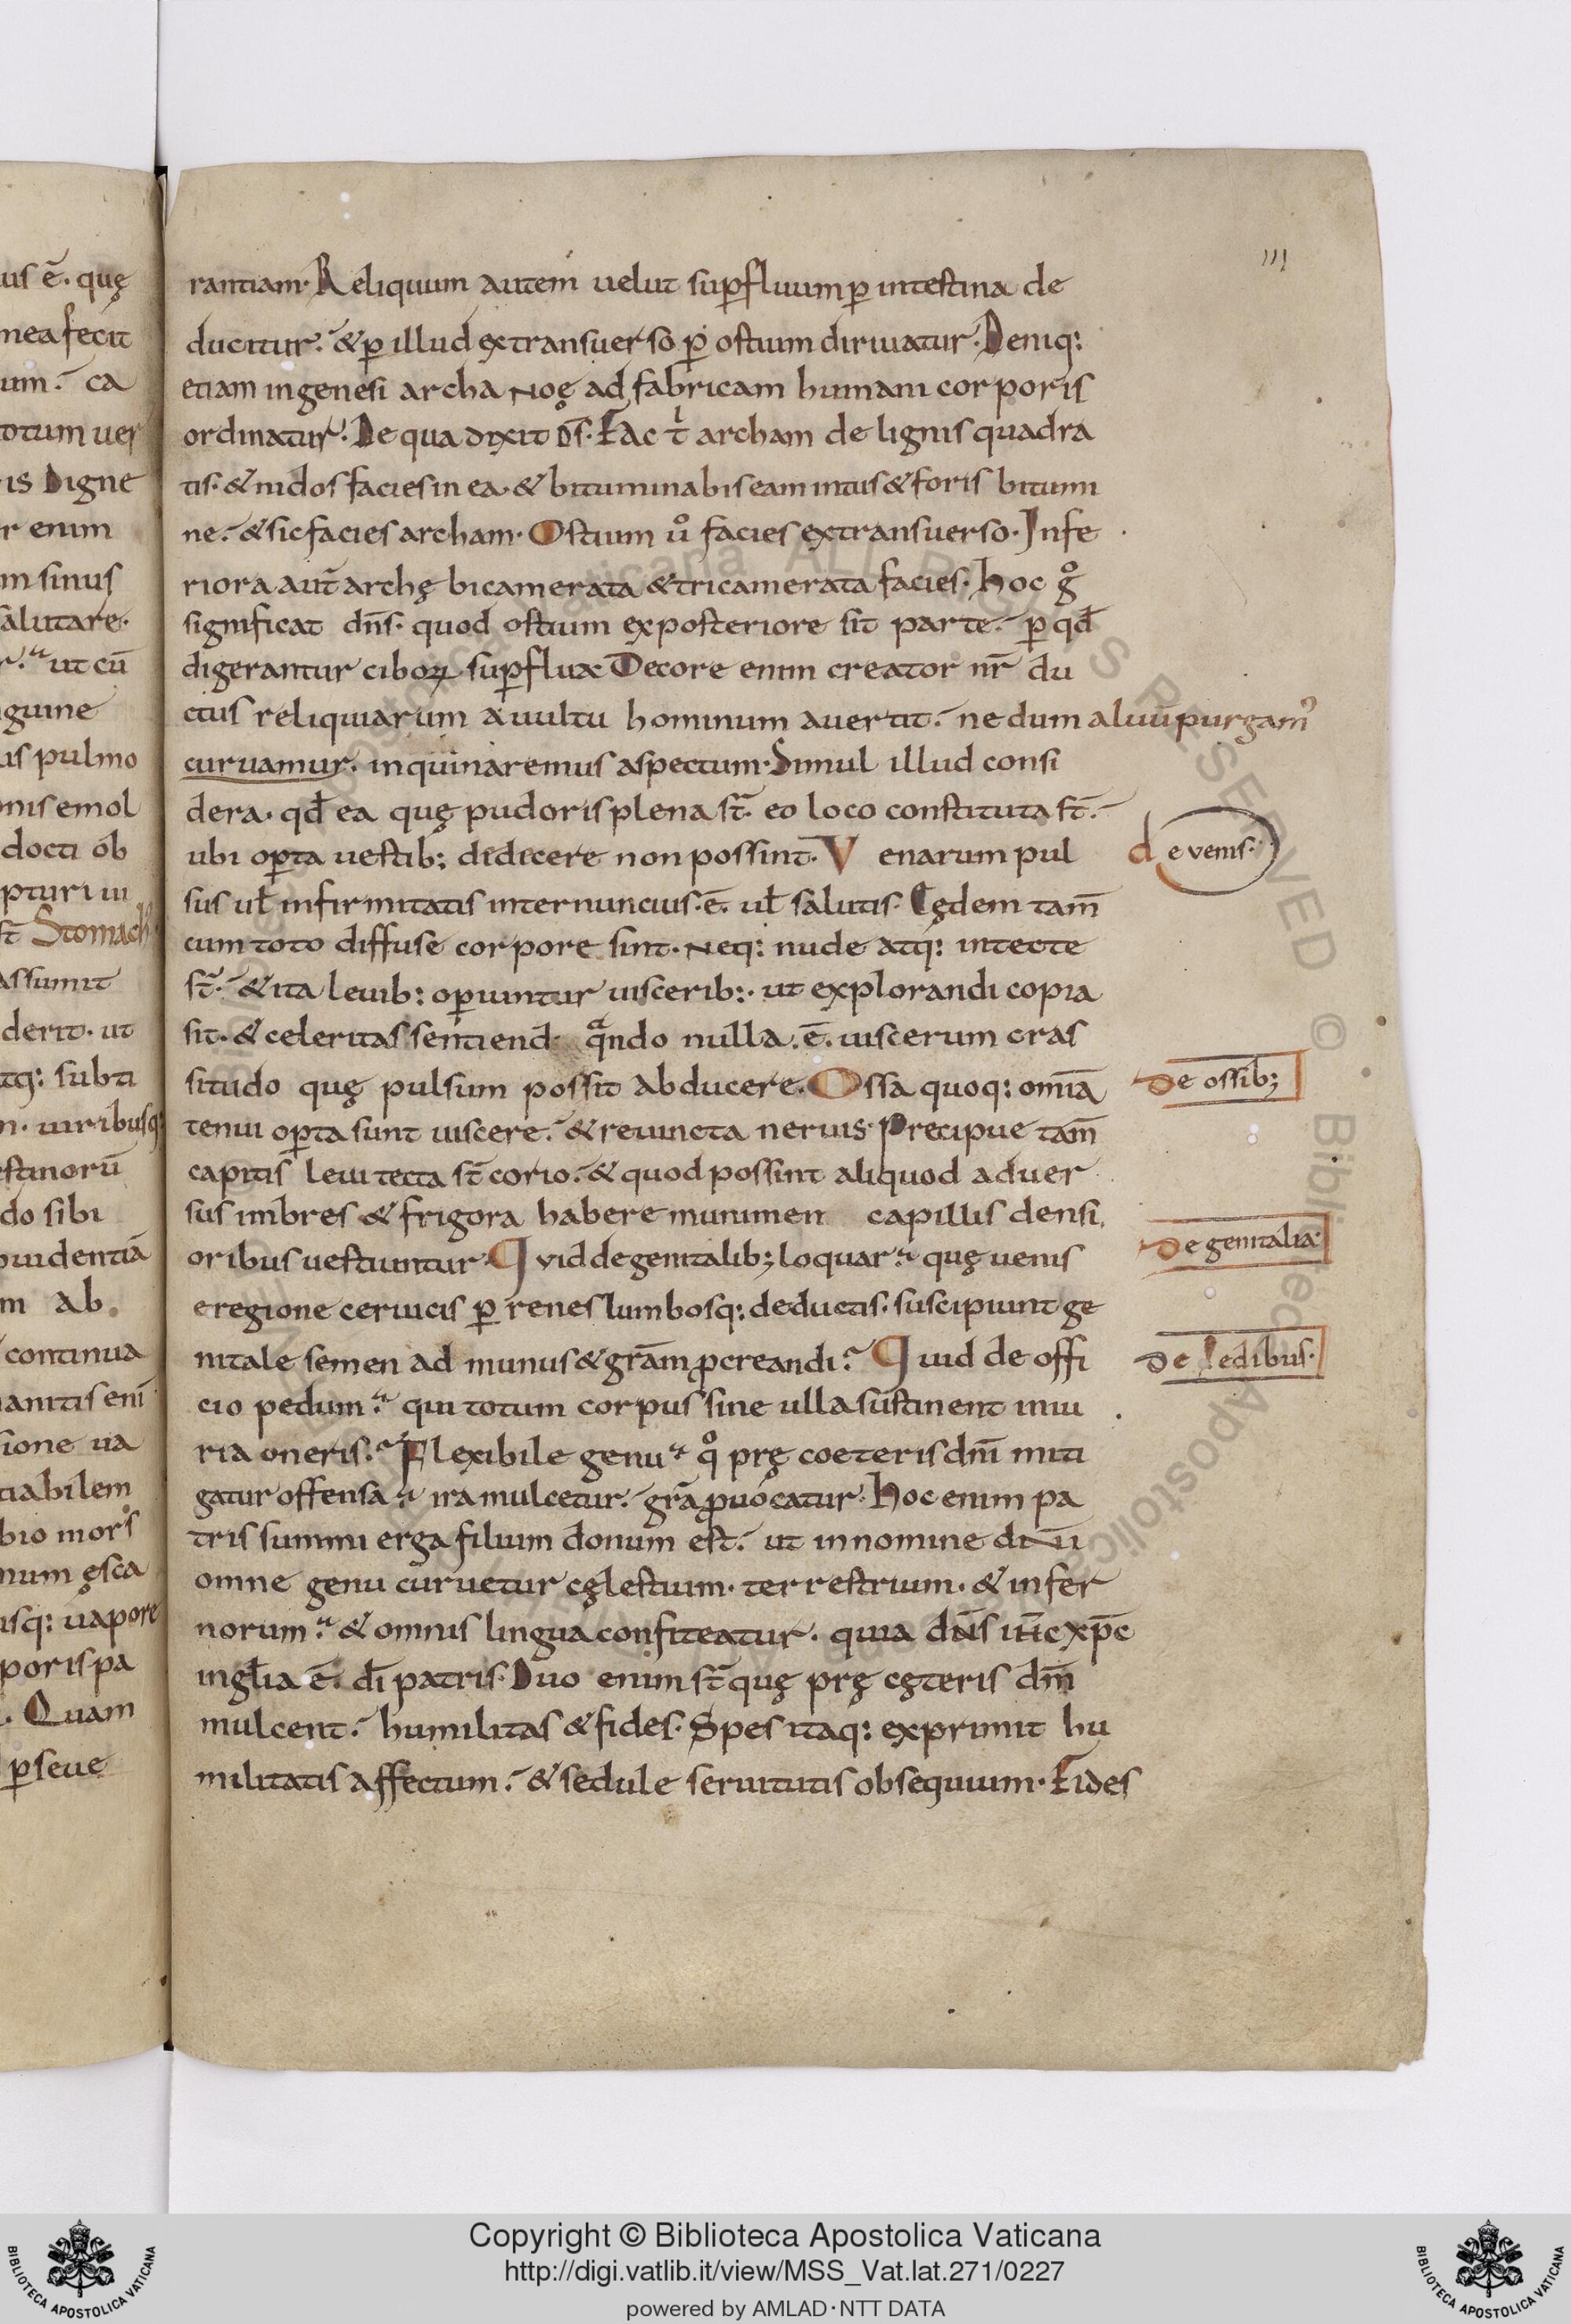 us ē. quę
nea fecit
um. ca
totum uer
is Digne
r enim
m sinus
salutare.
r. ut cū
guine
us pulmo
nis emol
docti ob
pturi ui
st̄ Stomach
assumit
derit. ut
tq: subti
n. uiribusq:
estinorū
do sibi
ouidentiā
m ab.
continua
anitis eni
sione ua
tiabilem
bio mors
num ęsca
usq: uapore
poris pa
. Quam
ꝑseue
III
rantiam. Reliquum autem uelut suꝑfluum ꝑ intestina de
ducitur. & ꝑ illud ex transuerso ꝑ ostium diriuatur. Deniq:
etiam in genesi archa Noę ad fabricam humani corporis
ordinatur. De qua dixit d̄s. Fac t' archam de lignis quadra
tis. & nidos facies in ea. & bituminabis eam intus & foris bitumi
ne. & sic facies archam. Ostium uº facies ex transuerso. Infe
riora aut̄ archę bicamerata & tricamerata facies. Hoc gº
significat dn̄s. quod ostium ex posteriore sit parte. ꝑ qđ
digerantur ciboꝝ suꝑflua Decore enim creator nr̄ du
ctus reliquiarum a uultu hominum auertit. ne dum aluū purgam'
curuamur. inquinaremus aspectum. Simul illud consi
dera. qđ ea quę pudoris plena st̄. eo loco constituta st̄.
ubi oꝑta uestib: dedicere non possint. Venarum pul
sus ul̄ infirmitatis internuncius. ē. ul̄ salutis. Eędem tam̄
cum toto diffuse corpore sint. neq: nude atq: intecte
st̄. & ita leuib: oꝑiuntur uiscerib:. ut explorandi copia
sit. & celeritas sentiend qando nulla. ē. uiscerum cras
situdo quę pulsum possit abducere. Ossa quoq: omiā
tenui oꝑta sunt uiscere. & reuincta neruis. Precipue tam̄
capitis leui tecta st̄ corio. & quod possint aliquod aduer
sus imbres & frigora habere munimen capillis densi
oribus uestiuntur. Quid de genitalib; loquar. quę uenis
e regione ceruicis ꝑ renes lumbosq: deductis. suscipiunt ge
nitale semen ad munus & grām ꝓcreandi. Quid de offi
cio pedum. qui totum corpus sine ulla sustinent iniu
ria oneris. Flexibile genu. qº prę coeteris dn̄i miti
gatur offensa. ira mulcetur. grā ꝓuocatur. Hoc enim pa
tris summi erga filium donum est. ut in nomine dn̄i
omne genu curuetur cęlestium. terrestrium. & infer
norum. & omnis lingua confiteatur. quia dn̄s ih̄c xp̄c
in gl̄ia ē. dī patris. Duo enim st̄ quę prę cęteris dm̄
mulcent. humilitas & fides. Spes itaq: exprimit hu
militatis affectum. & sedule seruitutis obsequium. Fides
de venis.
De ossib;
De genitalia.
De pedibus.
Copyright © Biblioteca Apostolica Vaticana
http://digi.vatlib.it/view/MSS_Vat.lat.271/0227
powered by AMLAD·NTT DATA
BIBLIOTECA APOSTOLICA VATICANA
BIBLIOTECA APOSTOLICA VATICANA